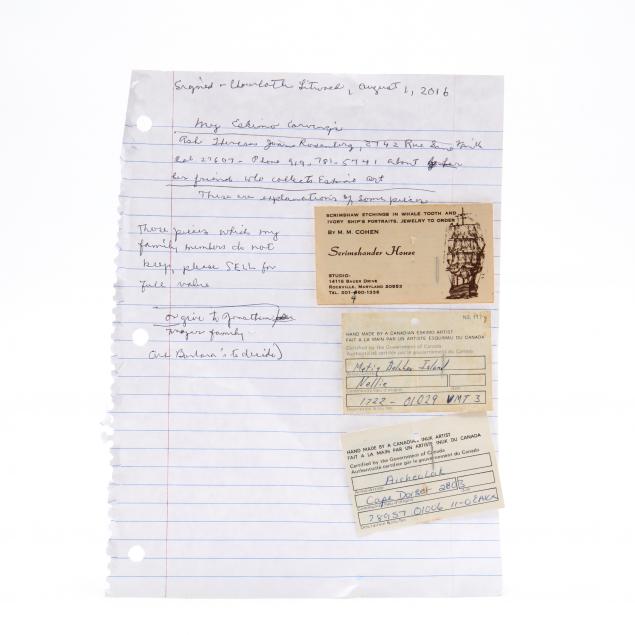 Signed - Litwack, August 1, 2016
My Eskimo Carvings
Ask Theresa Joann Rosenberg, 2742 Rue
27607 - Phone 919-781-5741 about her
her friend who collects Eskimo art
These are explanations of some pieces
Those pieces which my
family members do not
keep, please SELL for
full value
or give to Jonathan
Frazer family.
(are Barbara's to decide)
SCRIMSHAW ETCHINGS IN WHALE TOOTH AND
IVORY SHIP'S PORTRAITS, JEWELRY TO ORDER
BY M. M. COHEN
Scrimshander House
STUDIO:
14116 BAUER DRIVE
ROCKVILLE, MARYLAND 20853
TEL. 301-460-1336
HAND MADE BY A CANADIAN ESKIMO ARTIST
FAIT A LA MAIN PAR UN ARTISTE ESQUIMAU DU CANADA
Certified by the Government of Canada
Authenticité certifiée par le gouvernement du Canada
Belcher Island
Nellie
1722 - 01029 VMT 3
HAND MADE BY A CANADIAN INUK ARTIST
FAIT A LA MAIN PAR UN ARTISTE INUK DU CANADA
Certified by the Government of Canada
Authenticité certifiée par le gouvernement du Canada
Aicheulak
Cape Dorset
78957 01006